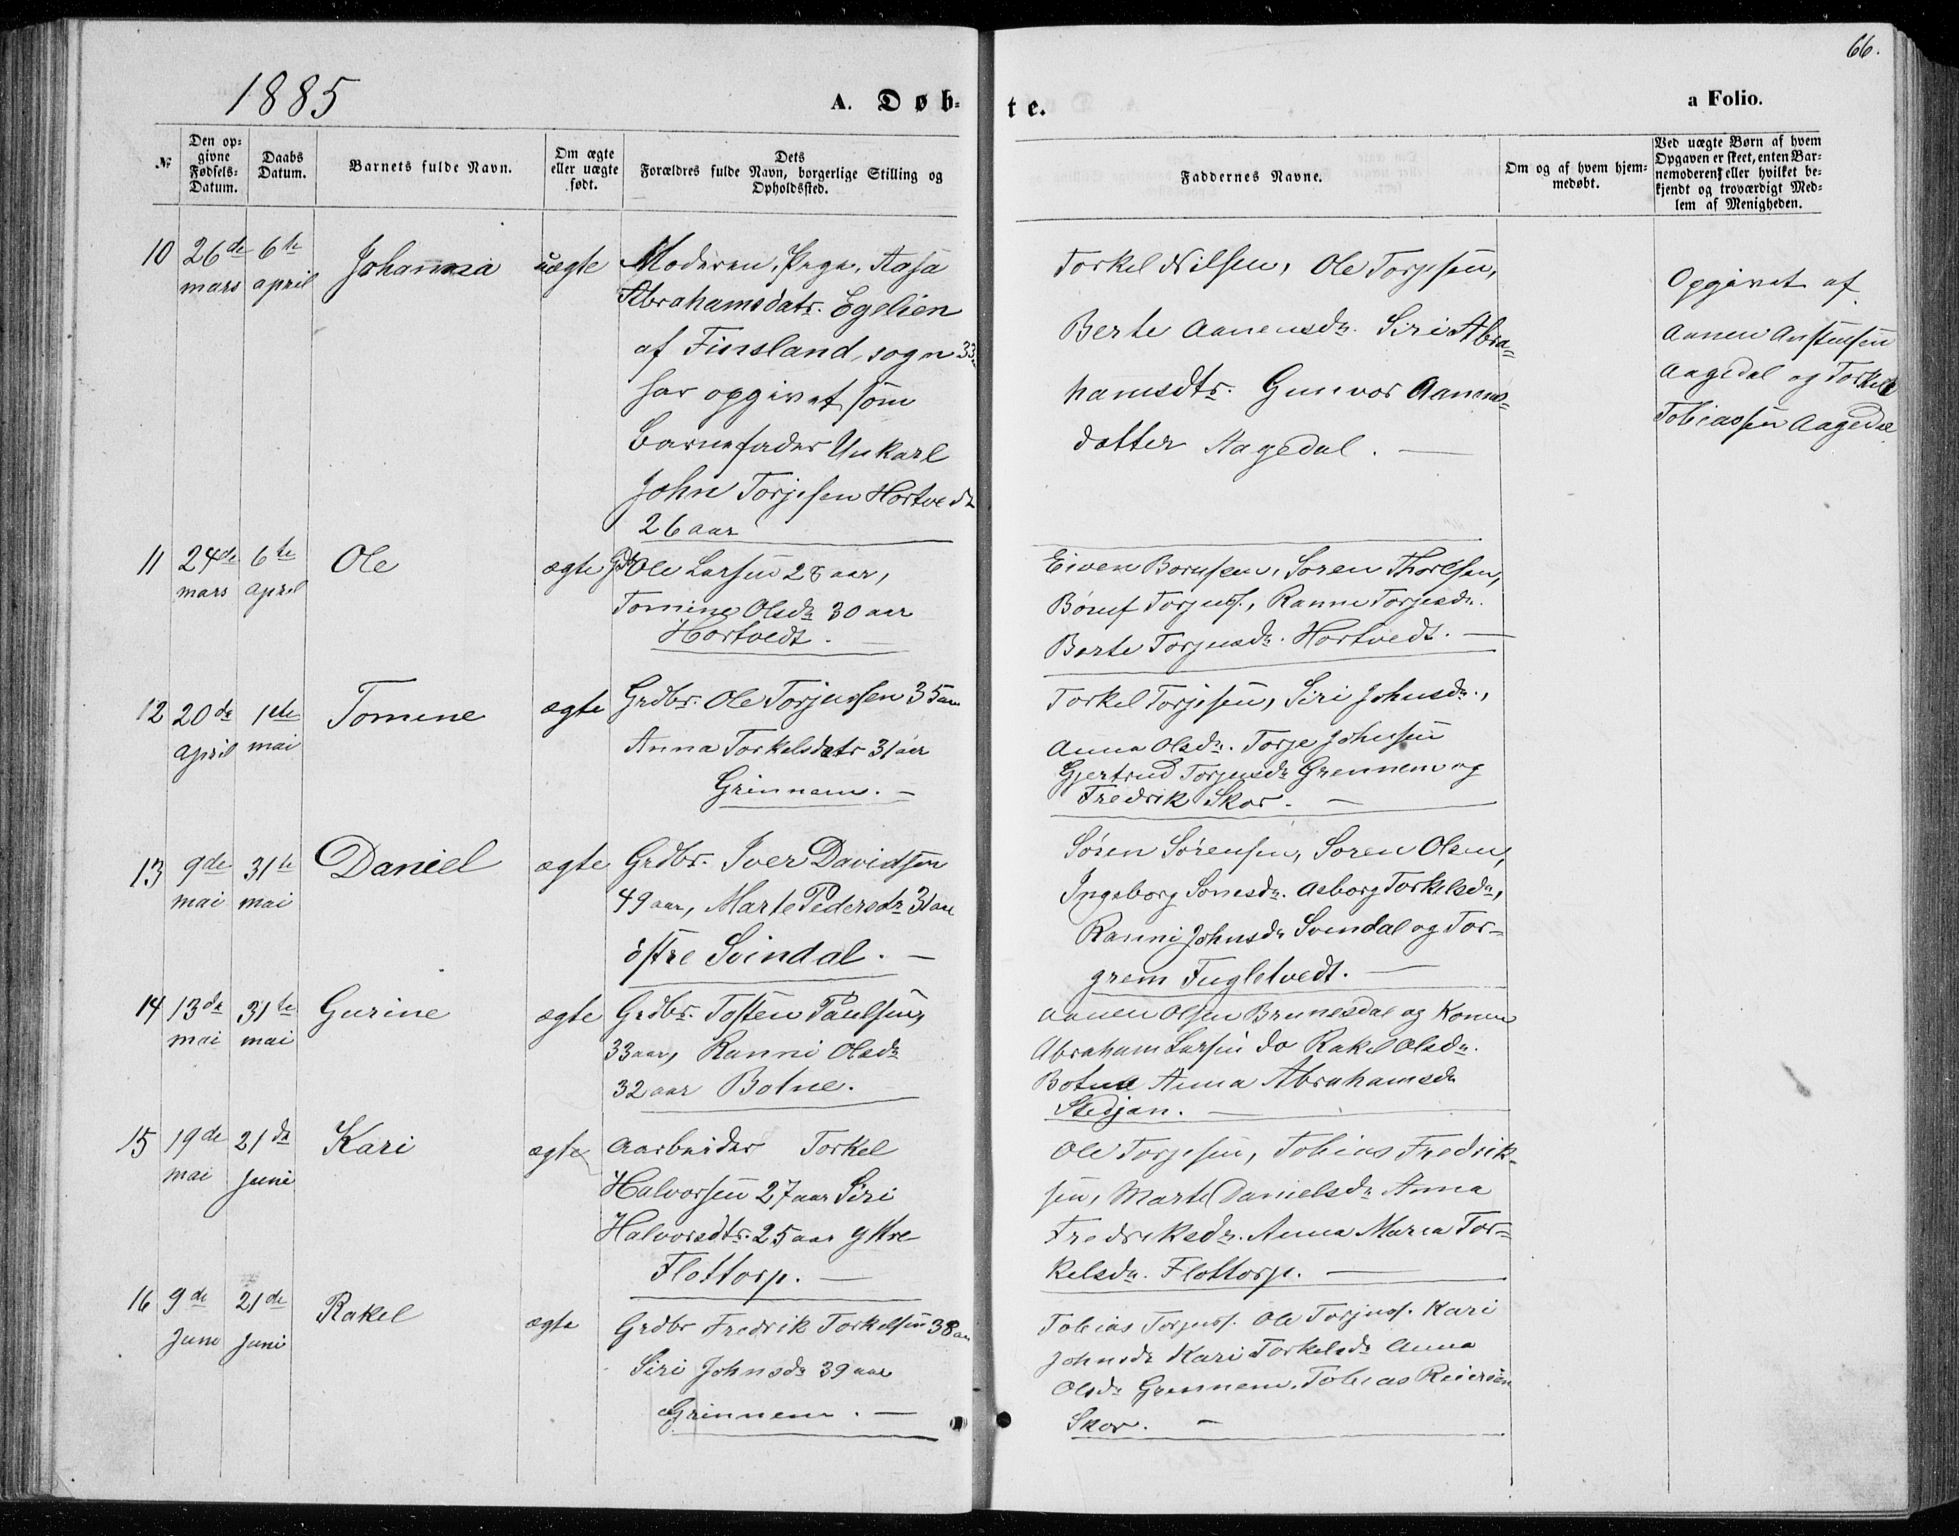 66.
1885
A. Døb-
te.
a Folio.
№
Den op-
givne
Fødsels-
Datum.
Daabs
Datum.
Barnets fulde Navn.
Om ægte
eller uægte
født.
Dets
Forældres fulde Navn, borgerlige Stilling og
Opholdssted.
Faddernes Navne.
Om og af hvem hjem-
medøbt.
Ved uægte Børn af hvem
Opgaven er skeet, enten Bar-
nemoderens eller hvilket be-
kjendt og troværdigt Med-
lem af Menigheden.
10 26de 6te Johanna uægte Moderen, Pige, Aasa
mars april
Abrahamsdatr. Egelien
af Finsland, sogn 33
har opgivet som
Barnefader Unkarl
John Torjesen Hortvedt
26 aar
Torkel Nilsen, Ole Torjesen,
Berte Aanensdr. Siri Abra-
hamsdtr. Gunvor Aanens-
datter Aagedal.
Opgivet af
Aanen Anstensen
Aagedal og Torkel
Tobiassen Aagedal
11 24de 6te Ole ægte Ole Larsen 28 aar,
mars april
Tomine Olsdr 30 aar
Hortvedt.
Eiven Bornsen, Soren Thorsen,
Torjuss., Ranni Torjesdr.
Berte Torjusdr. Hortvedt.
12 20de 1ste Tomine ægte Grdbr. Ole Torjussen 35 aar
april mai
Anna Torkelsdatr 31 aar
Grinnem.
Torkel Torjesen, Siri Johnsdr.,
Anna Olsdr. Torje Johnsen
Gjertrud Torjusdr Grennem og
Fredrik Skor.
13 9de 31te Daniel ægte Grdbr. Iver Davidsen
mai mai
49 aar, Marte Pedersdr 31 aar
östre Svindal.
Søren Sørensen, Soren Olsen,
Ingeborg Sørnesdr. Asborg Torkelsdr,
Ranni Johnsdr Svindal og Tor-
grem Fugletvedt.
14 13de 31te Gurine ægte Grdbr. Tosten Paulsen,
mai mai
33 aar, Ranni Olsdr
32 aar Botne.
Aanen Olsen Brunesdal og Konen
Abraham Larsen do Rakel Olsdr.
Botne Anna Abrahamsdr
Stedjan.
15 19de 21de Kari ægte Aarbeider Torkel
mai Juni
Halvorsen 27 aar Siri
Halvorsdtr. 25 aar yttre
Flottorp.
Ole Torjesen, Tobias Fredrik-
sen, Marte Danielsdr Anna
Fredriksdr. Anna Maria Tor-
kelsdr. Flottorp.
16 9de 21de Rakel ægte Grdbr Fredrik Torkelsen 38 aar
Juni Juni
Siri Johnsdr 39 aar
Grinnem.
Tobias Torjuss. Ole Torjuss. Kari
Johnsdr Kari Torkelsdr Anna
Olsdr Grennem. Tobias Reiersen
Skor.